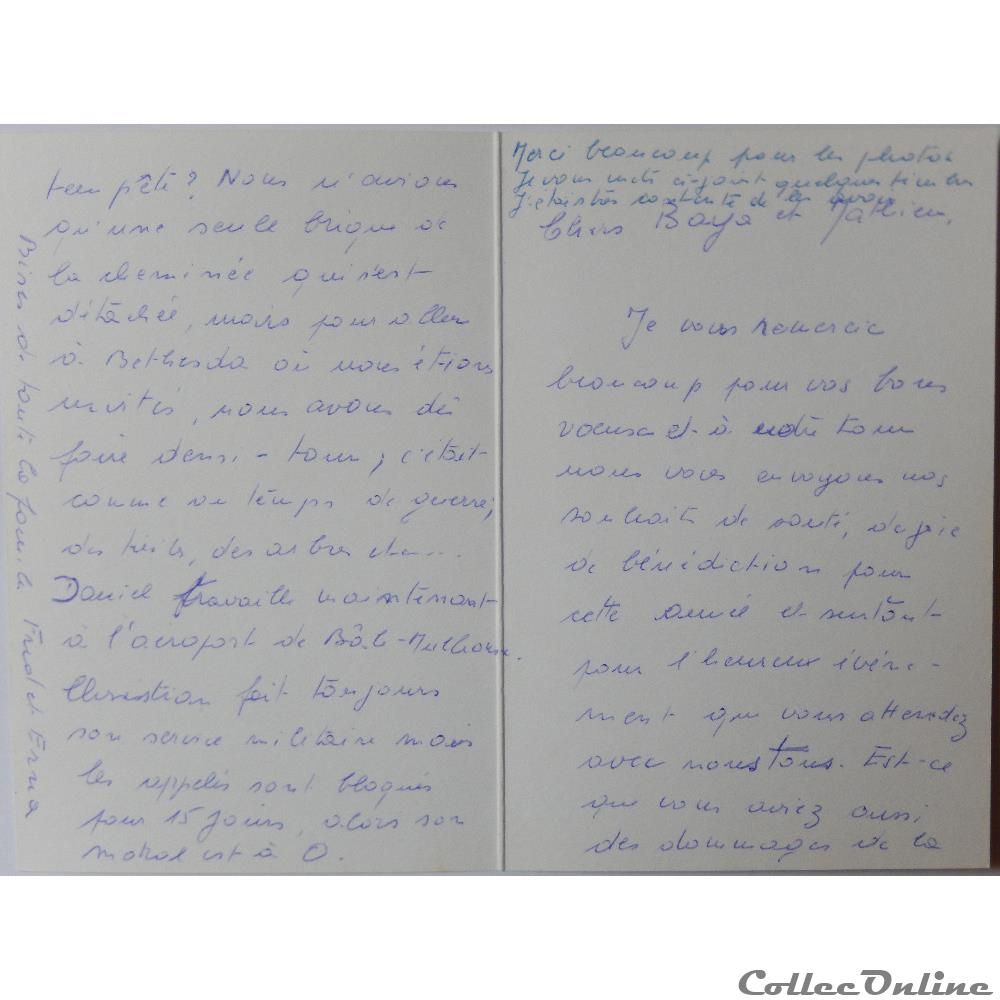 Merci beaucoup pour les photos
Je vous mets ci-joint quelques timbres
J'étais très contente de les avoir
Chers Baya et Mathieu,
Je vous remercie
beaucoup pour vos bons
voeux et à notre tour
nous vous envoyons nos
souhaits de santé, de joie
de bénédiction pour
cette année et surtout
pour l'heureux évène-
ment que vous attendez
avec nous tous. Est-ce
que vous aviez aussi
des dommages de la
tempête? Nous n'avions
qu'une seule brique de
la cheminée qui s'est
détachée, mais pour aller
à Bethesda où nous étions
invités, nous avons dû
faire demi-tour; c'était
comme en temps de guerre,
des toits, des arbres etc...
Daniel travaille maintenant
à l'aéroport de Bâle-Mulhouse.
Christian fait toujours
son service militaire mais
les appelés sont bloqués
pour 15 jours, alors son
moral est à 0.
Bises de toute la famille et Erna
CollecOnline